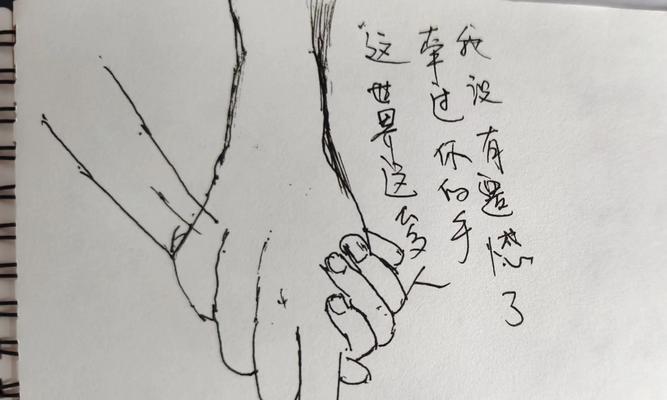 这世界这么多人
牵过你的手
我没有遗憾了